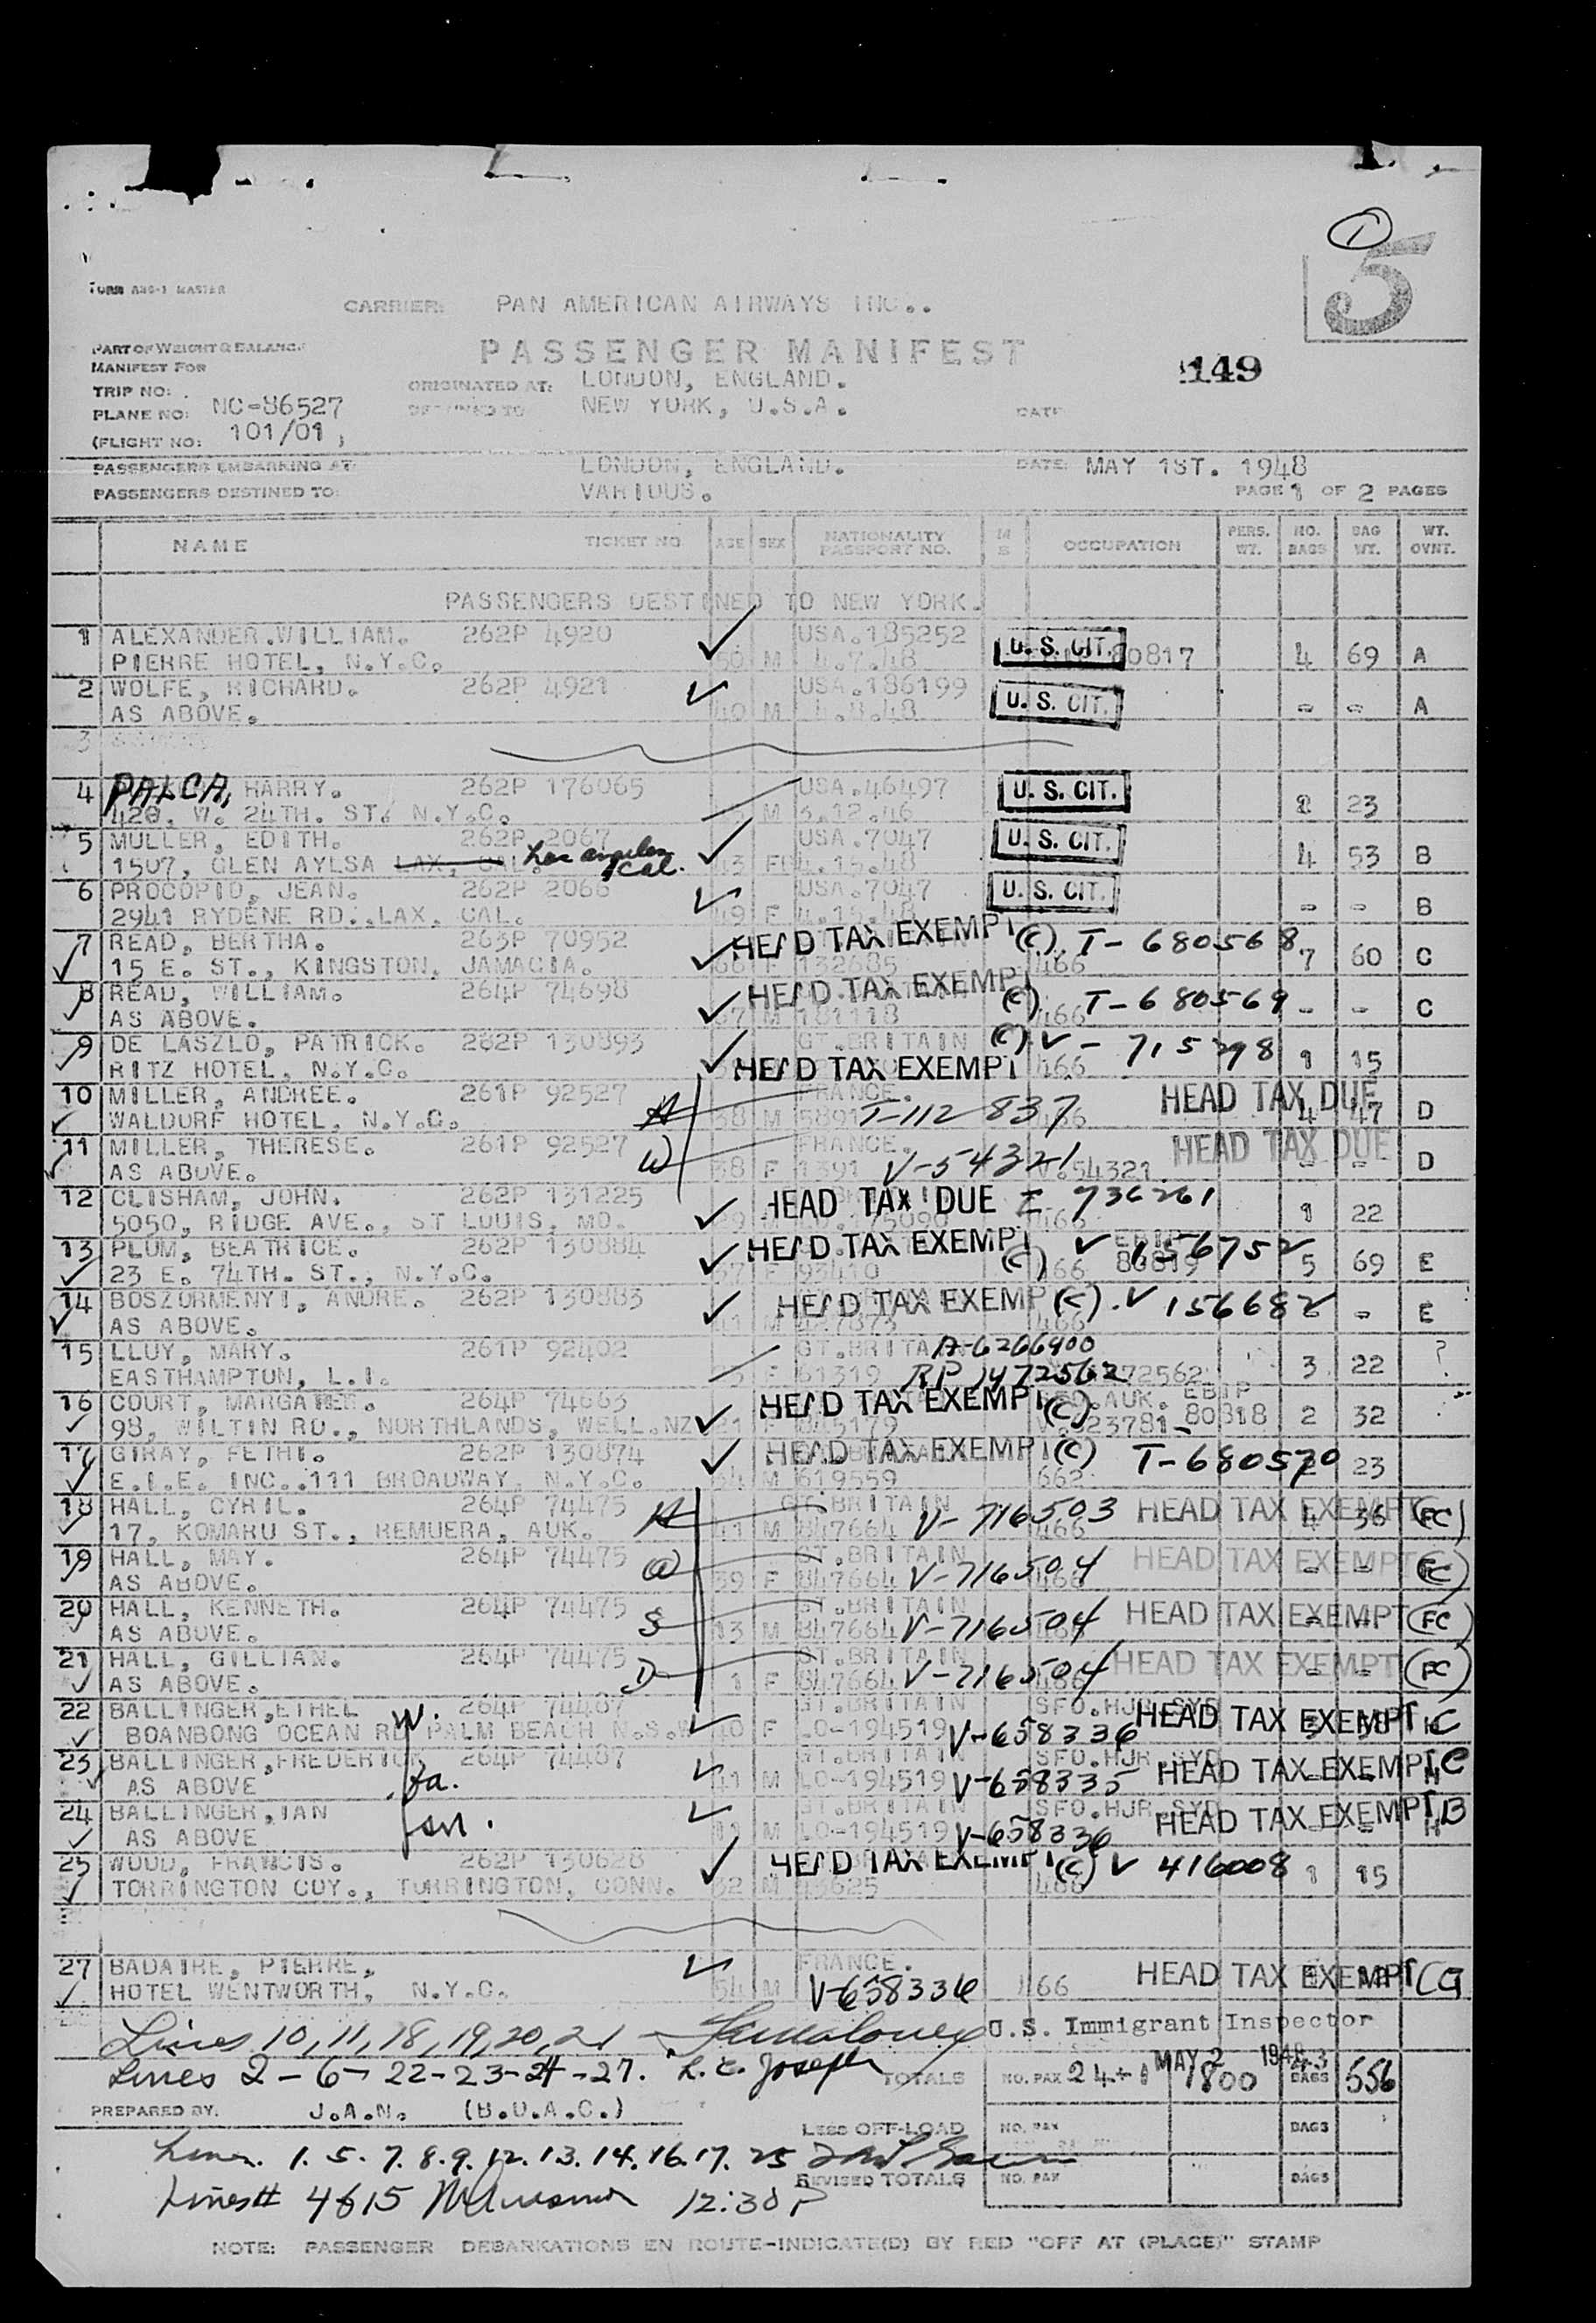 1
5
FORM ABG-1 MASTER
CARRIER: PAN AMERICAN AIRWAYS INC..
PART OF WEIGHT & BALANCE
MANIFEST FOR
PASSENGER MANIFEST
149
TRIP NO:
ORIGINATED AT: LONDON, ENGLAND.
PLANE NO: NC-86527
DESTINED TO NEW YORK, U.S.A. DATE
(FLIGHT NO: 101/01 )
PASSENGERS EMBARKING AT: LONDON, ENGLAND. DATE: MAY 1ST. 1948
PASSENGERS DESTINED TO: VARIOUS. PAGE 1 OF 2 PAGES
NAME TICKET NO AGE SEX NATIONALITY PASSPORT NO. M S OCCUPATION PERS. WT. NO. BAGS BAG WT. WT. OVNT.
PASSENGERS DESTINED TO NEW YORK.
1 ALEXANDER.WILLIAM. 262P 4920 USA.185252 U. S. CIT.
PIERRE HOTEL, N.Y.C. M 4.7.48 80817 4 69 A
2 WOLFE, RICHARD. 262P 4921 USA.186199 U. S. CIT.
AS ABOVE. 40 M 4.8.48 - - A
3
4 PALCA, HARRY. 262P 176065 USA.46497 U. S. CIT.
420, W. 24TH. ST. N.Y.C. M 3.12.46 2 23
5 MULLER, EDITH. 262P 2067 USA.7047 U. S. CIT.
1507, GLEN AYLSA LAX, CAL. Los angeles Cal. 43 F 4.15.48 4 53 B
6 PROCOPIO, JEAN. 262P 2066 USA.7047 U. S. CIT.
2941 RYDENE RD..LAX. CAL. 49 F 4.15.48 - - B
7 READ, BERTHA. 263P 70952 HEAD TAX EXEMPT (C). T-680568
15 E. ST., KINGSTON, JAMACIA. 66 F 132685 466 7 60 C
8 READ, WILLIAM. 264P 74698 HEAD TAX EXEMPT (C) T-680569
AS ABOVE. 67 M 181118 466 - - C
9 DE LASZLO, PATRICK. 262P 130893 GT.BRITAIN (C) V-715298
RITZ HOTEL, N.Y.C. HEAD TAX EXEMPT 466 1 15
10 MILLER, ANDREE. 261P 92527 FRANCE. T-112837 HEAD TAX DUE
WALDORF HOTEL, N.Y.C. H 38 M 5891 466 4 47 D
11 MILLER, THERESE. 261P 92527 FRANCE. V-54321 HEAD TAX DUE
AS ABOVE. W 38 F 1391 V.54321 - - D
12 CLISHAM, JOHN. 262P 131225 HEAD TAX DUE 736261
5050, RIDGE AVE., ST LOUIS, MO. 29 M 466 1 22
13 PLUM, BEATRICE. 262P 130884 HEAD TAX EXEMPT (C) V 156752
23 E. 74TH. ST., N.Y.C. 37 F 93410 466 80819 5 69 E
14 BOSZORMENYI, ANDRE. 262P 130883 HEAD TAX EXEMPT (C). V 156682
AS ABOVE. 41 M 427873 466 - - E
15 LLUY, MARY. 261P 92402 GT.BRITAIN A-6266400 ?
EASTHAMPTON, L.I. F 61319 RP 1472562 3 22
16 COURT, MARGARET. 264P 74663 HEAD TAX EXEMPT (C) AUK. EBIP
98, WILTIN RD., NORTHLANDS, WELL.NZ 21 F 845179 V.23781- 80818 2 32
17 GIRAY, FETHI. 262P 130874 HEAD TAX EXEMPT (C) T-680570
E.I.E. INC..111 BROADWAY, N.Y.C. 34 M 619559 662 2 23
18 HALL, CYRIL. 264P 74475 GT.BRITAIN V-716503 HEAD TAX EXEMPT (FC)
17, KOMARU ST., REMUERA, AUK. H 41 M 847664 466 4 36
19 HALL, MAY. 264P 74475 GT.BRITAIN V-716504 HEAD TAX EXEMPT (FC)
AS ABOVE. W 39 F 847664 466 - -
20 HALL, KENNETH. 264P 74475 GT.BRITAIN V-716504 HEAD TAX EXEMPT (FC)
AS ABOVE. S 13 M 847664 466 - -
21 HALL, GILLIAN. 264P 74475 GT.BRITAIN V-716504 HEAD TAX EXEMPT (FC)
AS ABOVE. D 1 F 847664 466 - -
22 BALLINGER,ETHEL W. 264P 74487 GT.BRITAIN SFO.HJR.SYD HEAD TAX EXEMPT C
BOANBONG OCEAN RD PALM BEACH N.S.W 40 F LO-194519 V-658336
23 BALLINGER,FREDERICK 264P 74487 GT.BRITAIN SFO.HJR.SYD HEAD TAX EXEMPT C
AS ABOVE fa. 41 M LO-194519 V-658335 - - H
24 BALLINGER,IAN GT.BRITAIN SFO.HJR.SYD HEAD TAX EXEMPT B
AS ABOVE son. 11 M LO-194519 V-658336 - - H
25 WOOD, FRANCIS. 262P 130628 HEAD TAX EXEMPT (C) V 416008
TORRINGTON COY., TORRINGTON, CONN. 32 M 43625 466 1 15
27 BADAIRE, PIERRE. FRANCE. HEAD TAX EXEMPT CG
HOTEL WENTWORTH, N.Y.C. 54 M V-658336 466
Lines 10, 11, 18, 19, 20, 21 U.S. Immigrant Inspector
Lines 2-6-22-23-24-27. R. E. Joseph TOTALS NO. PAX 24+1 MAY 2 1948 1800 43 BAGS 556
PREPARED BY. J.A.N. (B.O.A.C.)
LESS OFF-LOAD NO. PAX BAGS
Lines. 1. 5. 7. 8. 9. 12. 13. 14. 16. 17. 25
REVISED TOTALS NO. PAX BAGS
Lines# 4 & 15 12:30 P
NOTE: PASSENGER DEBARKATIONS EN ROUTE-INDICATE(D) BY RED "OFF AT (PLACE)" STAMP